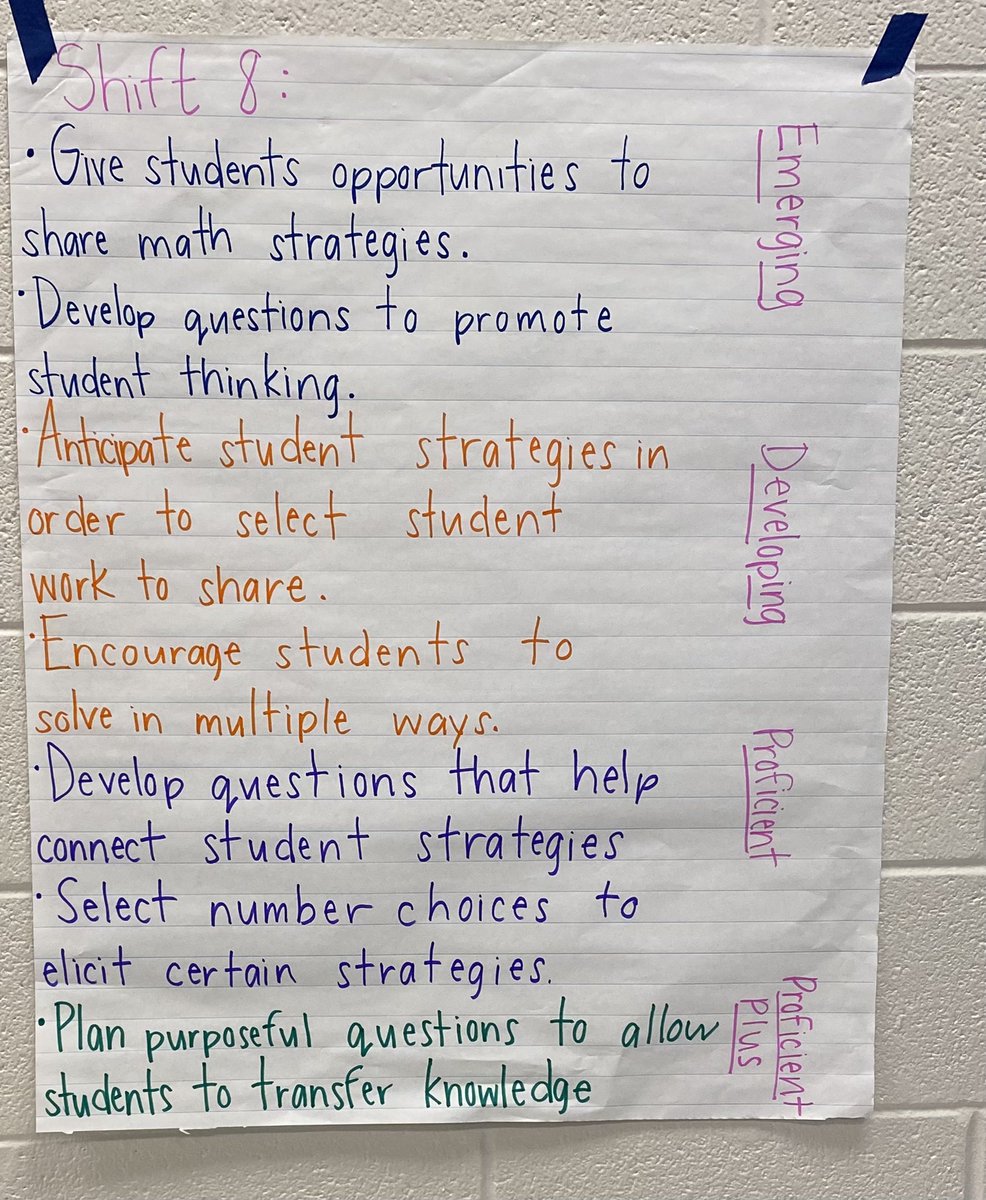 Shift 8:
• Give students opportunities to
share math strategies.
• Develop questions to promote
student thinking.
Emerging
• Anticipate student strategies in
order to select student
work to share.
• Encourage students to
solve in multiple ways.
Developing
• Develop questions that help
connect student strategies
• Select number choices to
elicit certain strategies.
Proficient
• Plan purposeful questions to allow
students to transfer knowledge
Proficient
Plus